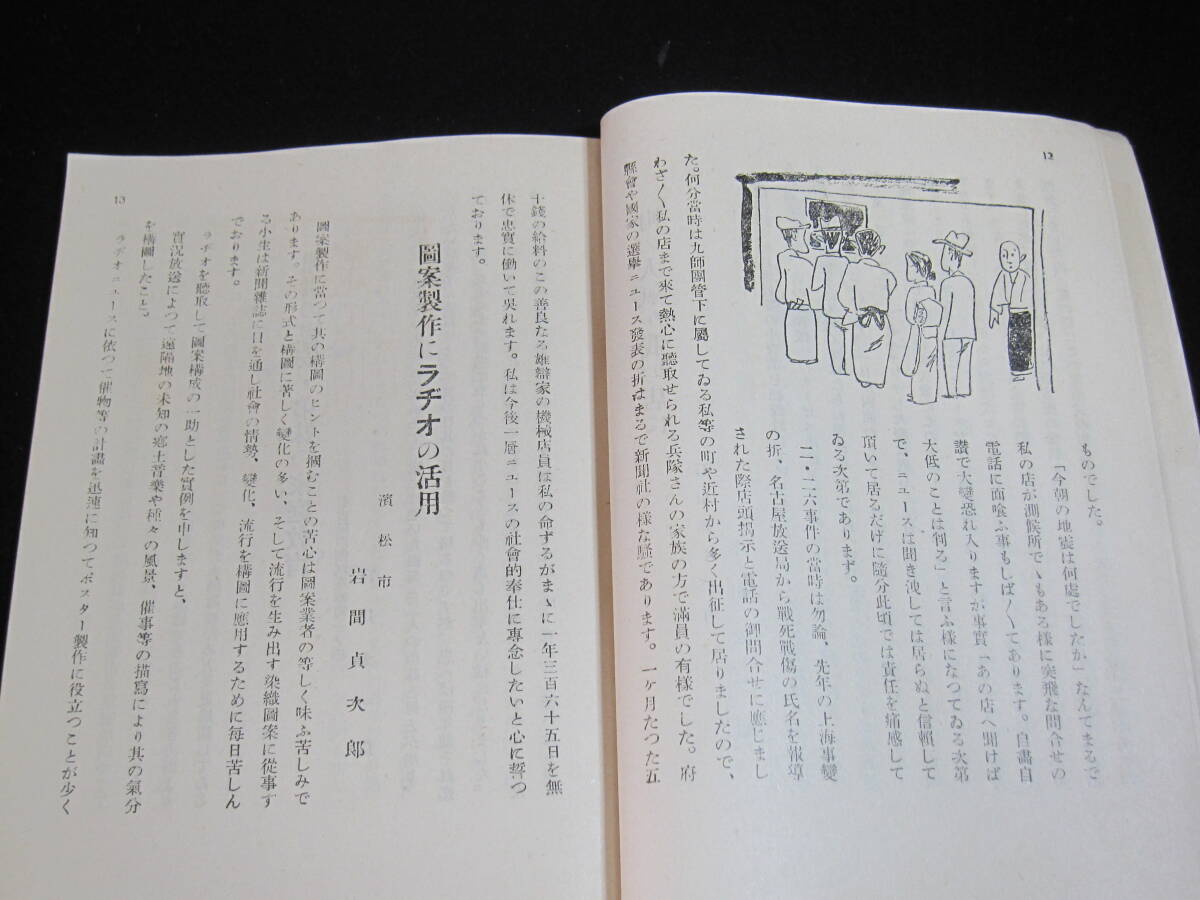 12
ものでした。
「今朝の地震は何處でしたか」なんてまるで
私の店が測候所でゝもある様に突飛な問合せの
電話に面喰ふ事もしば〱であります。自畵自
讃で大變恐れ入りますが事實「あの店へ聞けば
大低のことは判る」と言ふ様になつてゐる次第
で、ニュースは聞き洩しては居らぬと信頼して
頂いて居るだけに隨分此頃では責任を痛感して
ゐる次第であります。
二・二六事件の當時は勿論、先年の上海事變
の折、名古屋放送局から戰死戰傷の氏名を報導
された際店頭掲示と電話の御問合せに應じまし
た。何分當時は九師團管下に屬してゐる私等の町や近村から多く出征して居りましたので、
わざ〱私の店まで來て熱心に聽取せられる兵隊さんの家族の方で滿員の有樣でした。府
縣會や國家の選擧ニュース發表の折はまるで新聞社の樣な騷であります。一ケ月たつた五
十錢の給料のこの善良なる雄辯家の機械店員は私の命ずるがまゝに一年三百六十五日を無
休で忠實に働いて吳れます。私は今後一層ニュースの社會的奉仕に專念したいと心に誓つ
ております。
圖案製作にラヂオの活用
濱松市
岩間貞次郎
圖案製作に當つて其の構圖のヒントを摑むことの苦心は圖案業者の等しく味ふ苦しみで
あります。その形式と構圖に著しく變化の多い、そして流行を生み出す染織圖案に從事す
る小生は新聞雜誌に目を通し社會の情勢、變化、流行を構圖に應用するために每日苦しん
でおります。
ラヂオを聽取して圖案構成の一助とした實例を申しますと、
實況放送によつて遠隔地の未知の鄕土音樂や種々の風景、催事等の描寫により其の氣分
を構圖したこと。
ラヂオニュースに依つて催物等の計畫を迅速に知つてポスター製作に役立つことが少く
13